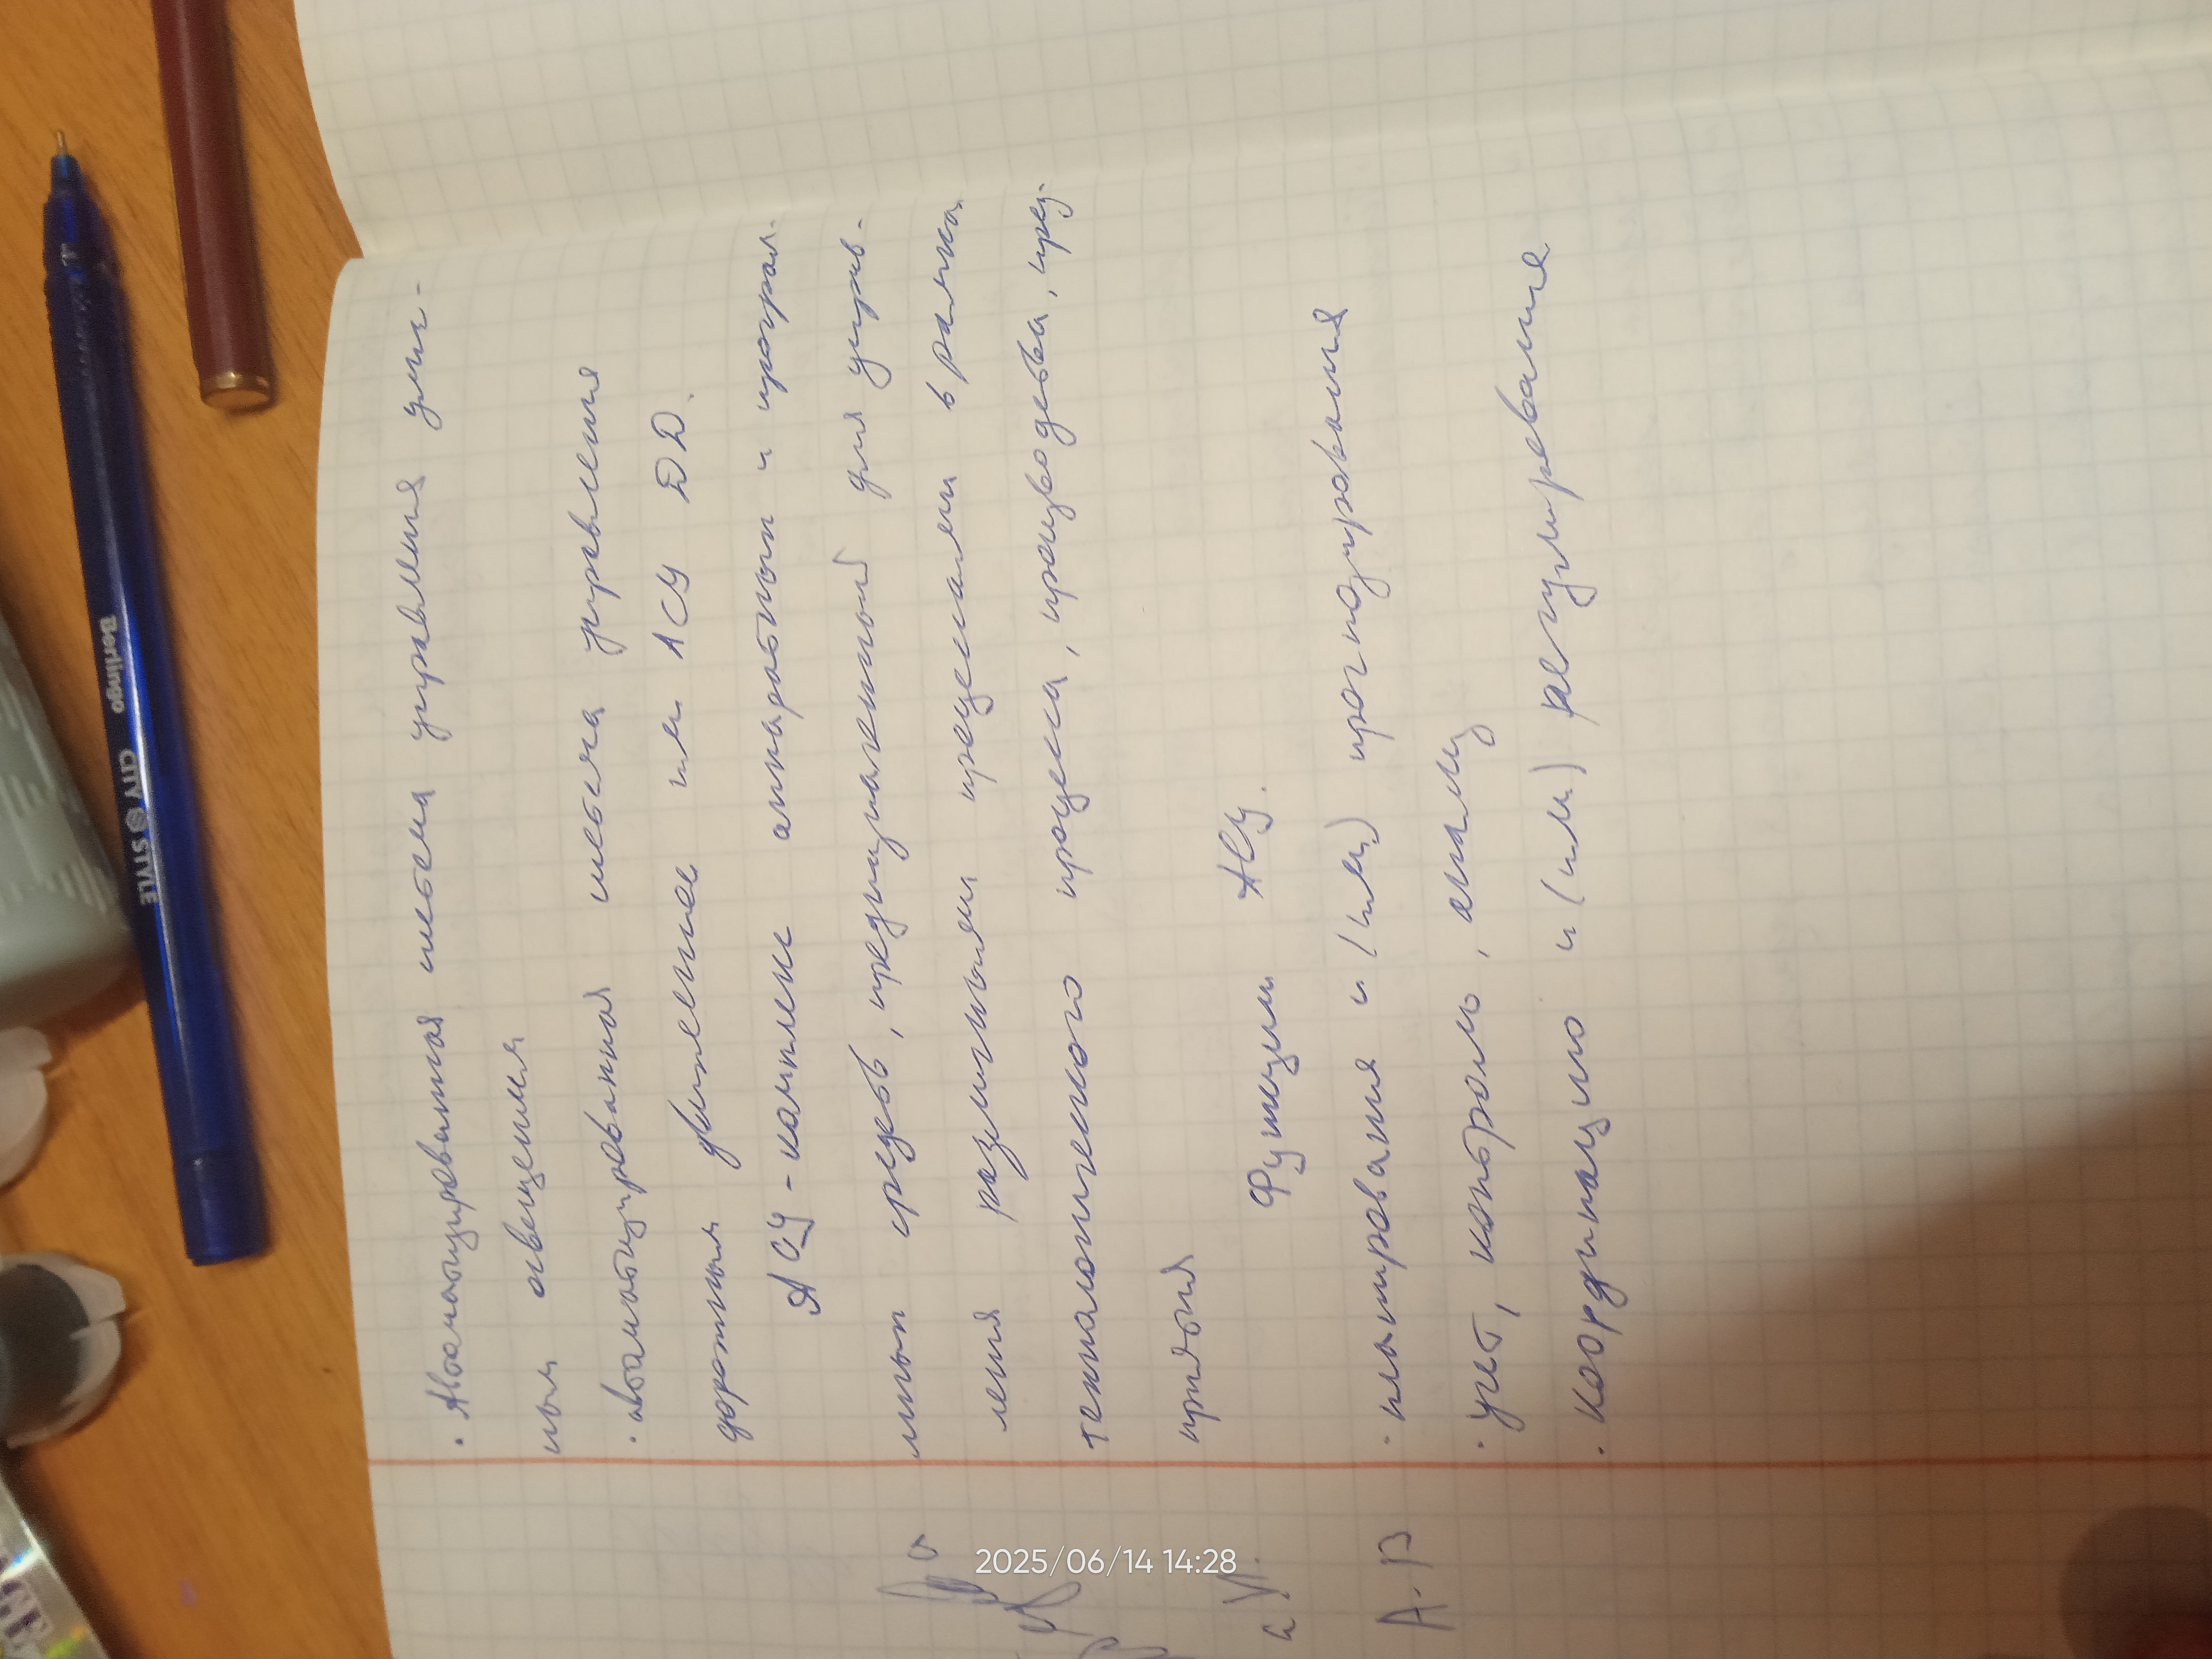 · Автоматизированная система управления улич-
ным освещения
· автоматизированная система управления
дорожным движением или АСУ ДД.
АСУ - комплекс аппаратных и програм.
мных средств, предназначенный для управ-
ления различными процессами в рамках
технологического процесса, производства, пред-
приятия
Функции АСУ.
· планирования и (или) прогнозирования
· учет, контроль, анализ
· координацию и (или) регулирование
А.В
Berlingo CITY STYLE
2025/06/14 14:28